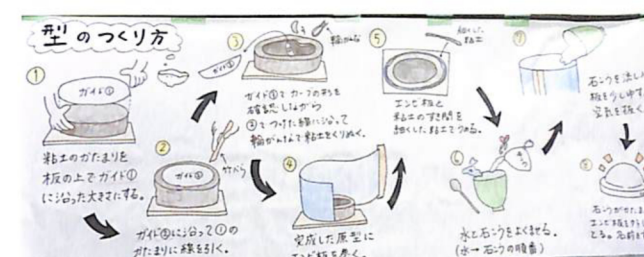 型のつくり方
①
ガイド①
粘土のかたまりを
板の上でガイド①
に沿った大きさにする。
②
ガイド②
竹べら
ガイド②に沿って①の
かたまりに線を引く。
③
輪かんな
ガイド③
ガイド③でカーブの形を
確認しながら
②でつけた線に沿って
輪かんなで粘土をくりぬく。
④
完成した原型に
エンビ板を巻く。
⑤
細くした
粘土
エンビ板と
粘土のすき間を
細くした粘土でうめる。
⑥
水と石こうをよくまぜる。
(水→石こうの順番)
⑦
石こうを流し
板を少しゆす
空気を抜く
⑧
石こうがかたま
エンビ板を
とる。名前を